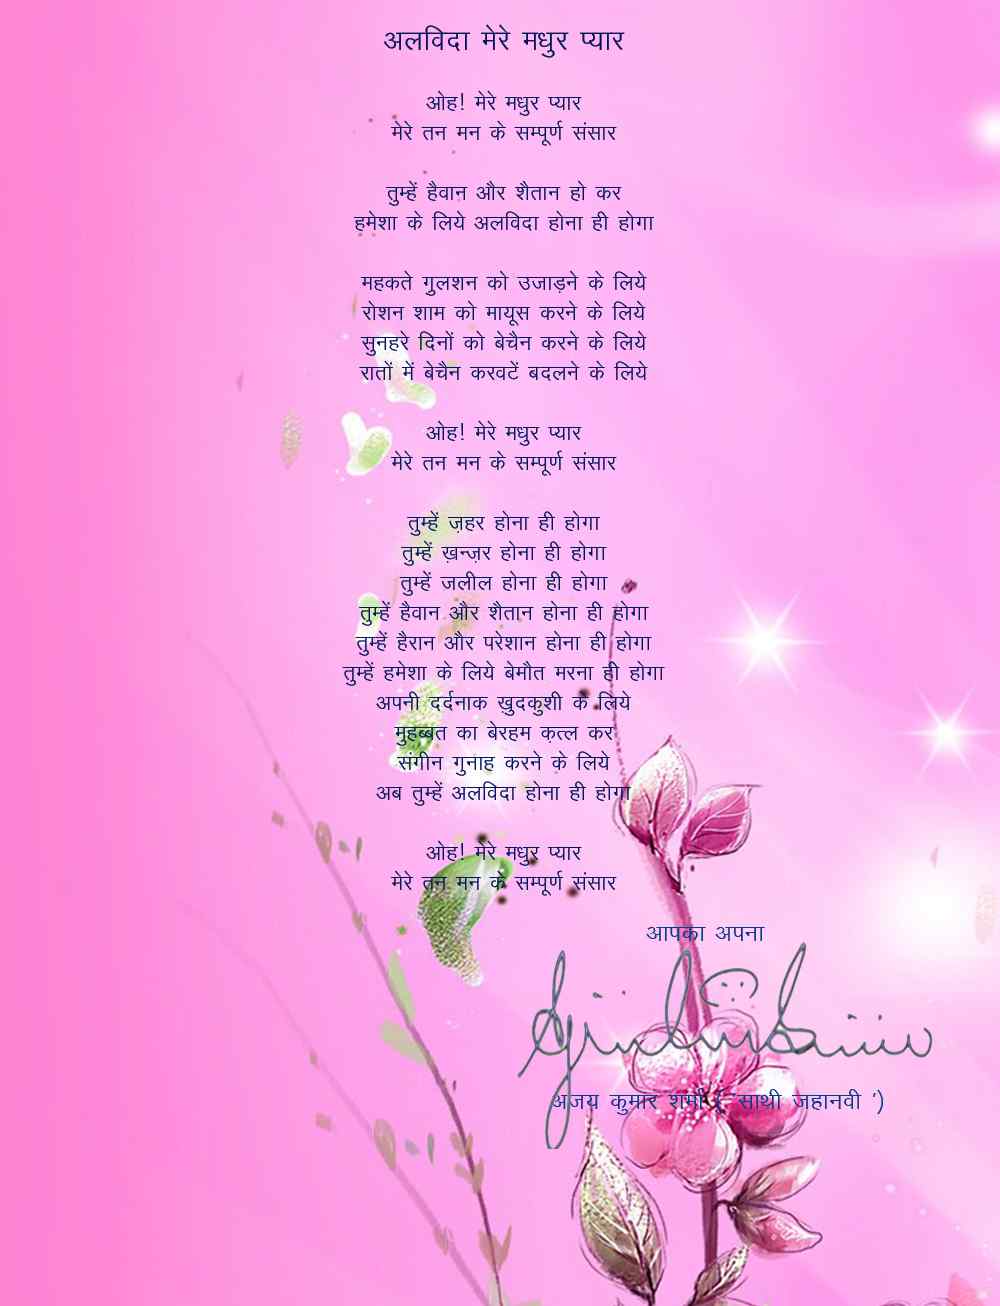 अलविदा मेरे मधुर प्यार
ओह! मेरे मधुर प्यार
मेरे तन मन के सम्पूर्ण संसार
तुम्हें हैवान और शैतान हो कर
हमेशा के लिये अलविदा होना ही होगा
महकते गुलशन को उजाड़ने के लिये
रोशन शाम को मायूस करने के लिये
सुनहरे दिनों को बेचैन करने के लिये
रातों में बेचैन करवटें बदलने के लिये
ओह! मेरे मधुर प्यार
मेरे तन मन के सम्पूर्ण संसार
तुम्हें ज़हर होना ही होगा
तुम्हें ख़न्ज़र होना ही होगा
तुम्हें जलील होना ही होगा
तुम्हें हैवान और शैतान होना ही होगा
तुम्हें हैरान और परेशान होना ही होगा
तुम्हें हमेशा के लिये बेमौत मरना ही होगा
अपनी दर्दनाक ख़ुदकुशी के लिये
मुहब्बत का बेरहम क़त्ल कर
संगीन गुनाह करने के लिये
अब तुम्हें अलविदा होना ही होगा
ओह! मेरे मधुर प्यार
मेरे तन मन के सम्पूर्ण संसार
आपका अपना
अजय कुमार शर्मा ( 'साथी जहानवी ')